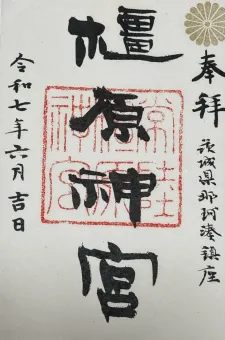 奉拝
茨城県那珂湊鎮座
橿原神宮
令和七年六月吉日